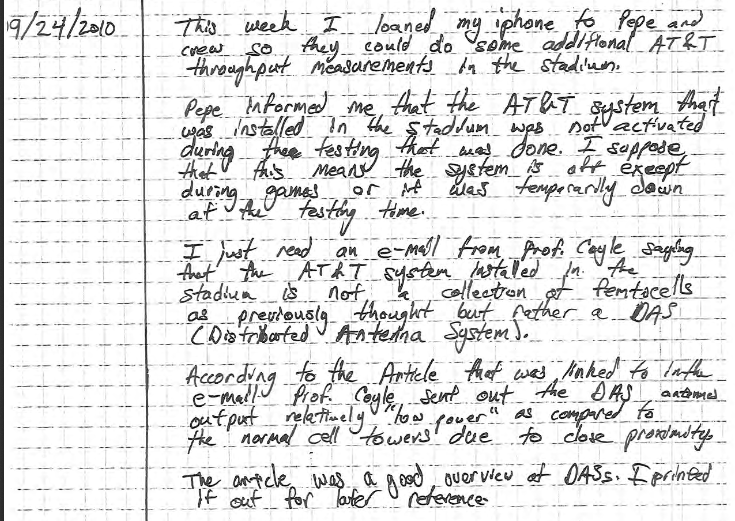 9/24/2010
This week I loaned my iphone to Pepe and
crew so they could do some additional AT&T
throughput measurements in the stadium.
Pepe informed me that the AT&T system that
was installed in the stadium was not activated
during the testing that was done. I suppose
that this means the system is off except
during games or it was temporarily down
at the testing time.
I just read an e-mail from Prof. Coyle saying
that the AT&T system installed in the
stadium is not a collection of femtocells
as previously thought but rather a DAS
(Distributed Antenna System).
According to the Article that was linked to in the
e-mail Prof. Coyle sent out the DAS antennas
output relatively "low power" as compared to
the normal cell towers due to close proximity.
The article was a good overview of DASs. I printed
it out for later reference.